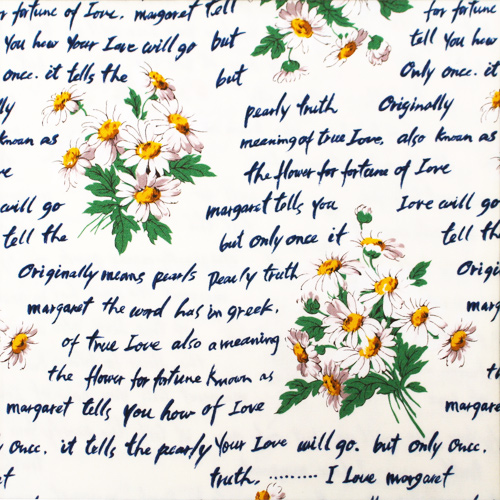 for fortune of Love. margaret tell for fortune
You how Your Love will go but tell You how
once. it tells the but Only once. it
pearly truth Originally
meaning of true Love, also known as
known as the flower for fortune of Love
will go margaret tells you Love will go
tell the but only once it tell th
Originally means pearls pearly truth Origi
margaret the word has in greek. marg
of true Love also a meaning
the flower for fortune known as
margaret tells You how of Love margare
once. it tells the pearly Your Love will go. but only once.
truth. ......... I Love margaret